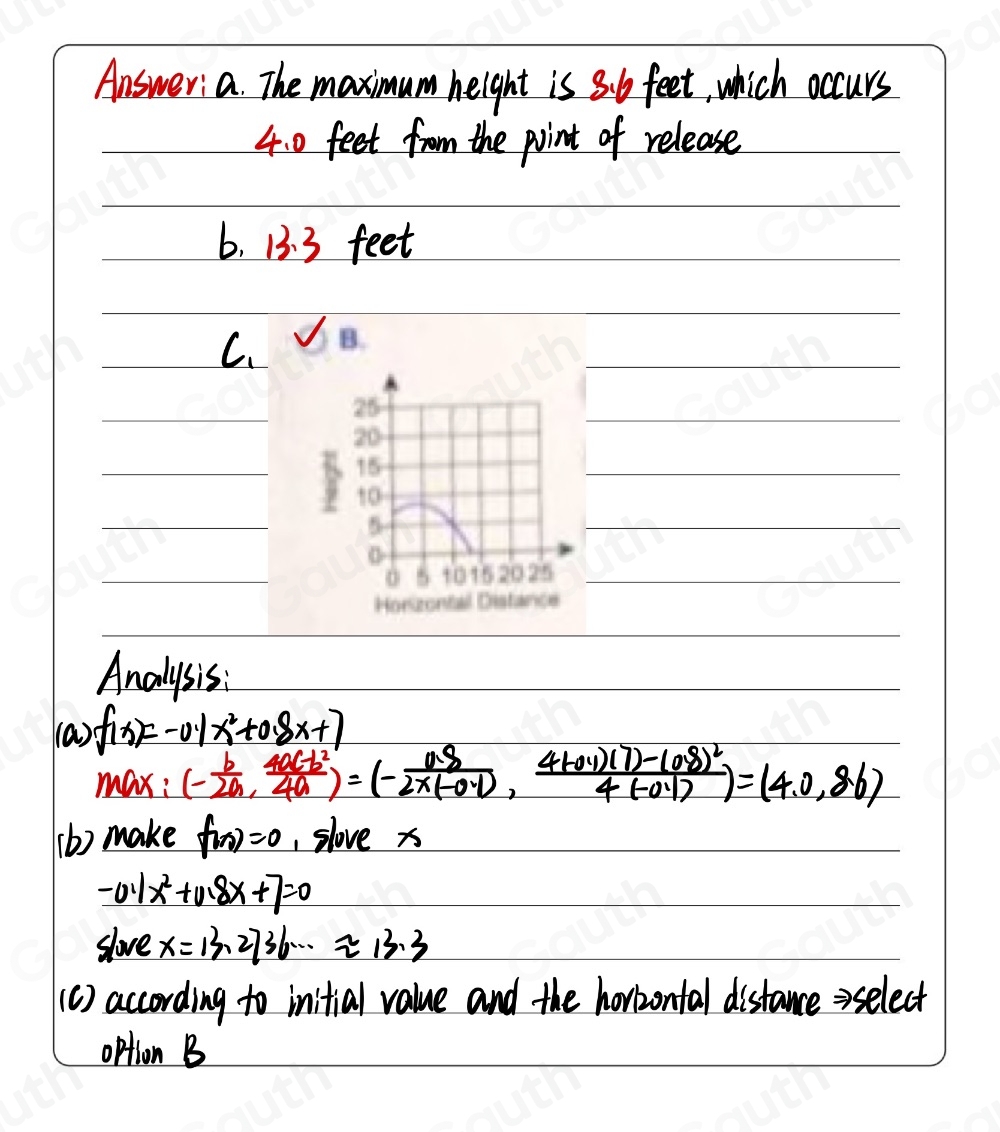 Answer: a. The maximum height is 8.6 feet, which occurs
4.0 feet from the point of release
b. 13.3 feet
c. ✓ B.
25
20
15
10
5
0
Height
0 5 10 15 20 25
Horizontal Distance
Analysis:
(a) f(x)= -0.1x²+0.8x+7
max: (-b/2a, 4ac-b²/4a) = (-0.8/2×(-0.1), 4(-0.1)(7)-(0.8)²/4(-0.1)) = (4.0, 8.6)
(b) make f(x)=0, slove x
-0.1x²+0.8x+7=0
slove x = 13.2736... ≈ 13.3
(c) according to initial value and the horizontal distance ⇒ select
option B
Gauth